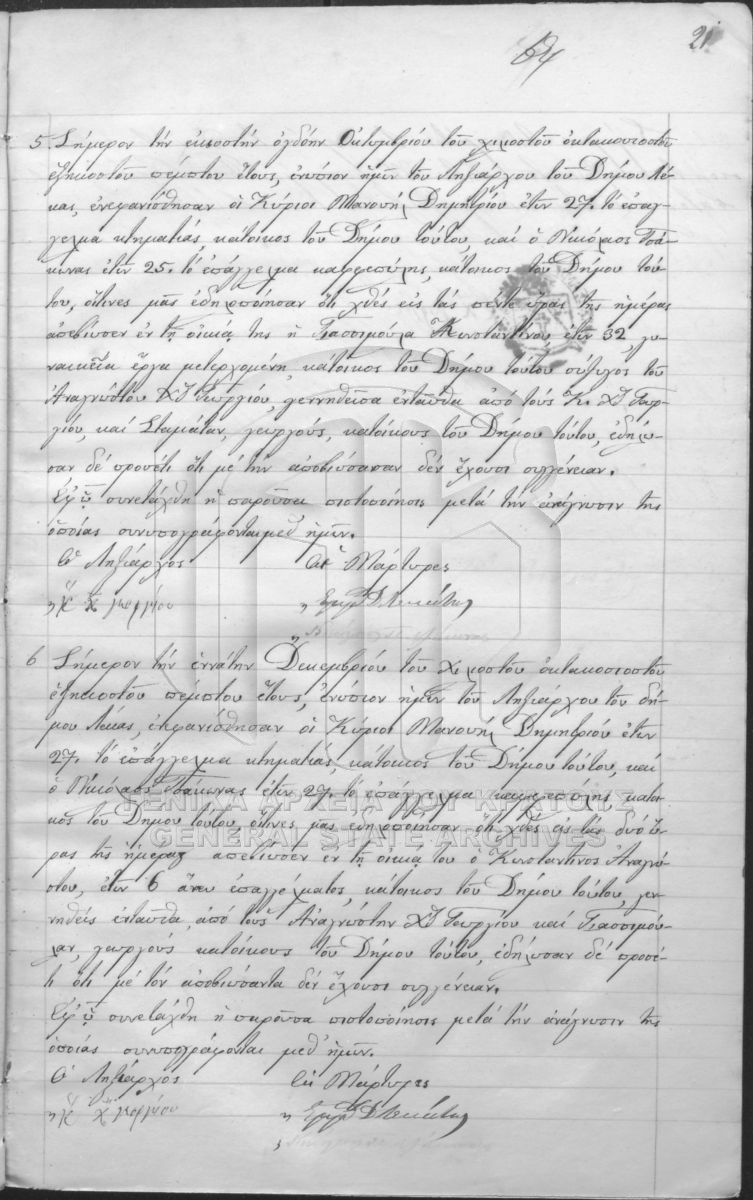 21
64
5. Σήμερον τήν εἰκοστήν ὀγδόην Ὀκτωμβρίου τοῦ χιλιοστοῦ ὀκτακοσιοστοῦ
ἑξηκοστοῦ πέμπτου ἔτους, ἐνώπιον ἡμῶν τοῦ Ληξιάρχου τοῦ Δήμου Λέ-
κας, ἐνεφανίσθησαν οἱ Κύριοι Μανουήλ Δημητρίου ἐτῶν 27. τό ἐπάγ-
γελμα κτηματίας, κάτοικος τοῦ Δήμου τούτου, καί ὁ Νικόλαος Τσά-
κωνας ἐτῶν 25. τό ἐπάγγελμα καφφεπώλης, κάτοικος τοῦ Δήμου τού-
του, οἵτινες μᾶς ἐδηλοποίησαν ὅτι χθές εἰς τάς πέντε ὥρας τῆς ἡμέρας
ἀπεβίωσεν ἐν τῇ οἰκίᾳ της ἡ Γιασιμούλα Κωνσταντίνου ἐτῶν 32, γυ-
ναικεῖα ἔργα μετερχομένη, κάτοικος τοῦ Δήμου τούτου σύζυγος τοῦ
Ἀναγνώστου ΧΪ Γεωργίου, γεννηθεῖσα ἐνταῦθα ἀπό τούς Κ. ΧΪ Γεωρ-
γίου, καί Σταμάταν, γεωργούς, κατοίκους τοῦ Δήμου τούτου, ἐδήλω-
σαν δέ προσέτι ὅτι μέ τήν ἀποβιώσασαν δέν ἔχουσι συγγένειαν.
Ἐφ' ᾧ συνετάχθη ἡ παροῦσα πιστοποίησις μετά τήν ἀνάγνωσιν τῆς
ὁποίας συνυπογράφονται μεθ' ἡμῶν.
Ὁ Ληξίαρχος Οἱ Μάρτυρες
Κ Χ γεοργίου
6 Σήμερον τήν ἐννάτην Δεκεμβρίου τοῦ χιλιοστοῦ ὀκτακοσιοστοῦ
ἑξηκοστοῦ πέμπτου ἔτους, ἐνώπιον ἡμῶν τοῦ Ληξιάρχου τοῦ δή-
μου Λέκας, ἐνεφανίσθησαν οἱ Κύριοι Μανουήλ Δημητρίου ἐτῶν
27. τό ἐπάγγελμα κτηματίας, κάτοικος τοῦ Δήμου τούτου, καί
ὁ Νικόλαος Τσάκωνας ἐτῶν 27. τό ἐπάγγελμα καφεπώλης κάτοι-
κος τοῦ Δήμου τούτου οἵτινες μᾶς ἐδηλοποίησαν ὅτι χθές εἰς τάς δύο ὥ-
ρας τῆς ἡμέρας ἀπεβίωσεν ἐν τῇ οἰκίᾳ του ὁ Κωνσταντῖνος Ἀναγνώ-
στου, ἐτῶν 6 ἄνευ ἐπαγγέλματος, κάτοικος τοῦ Δήμου τούτου, γεν-
νηθείς ἐνταῦθα ἀπό τούς Ἀναγνώστην ΧΪ Γεωργίου καί Γιασιμού-
λαν, γεωργούς κατοίκους τοῦ Δήμου τούτου, ἐδήλωσαν δέ προσέ-
τι ὅτι μέ τόν ἀποβιώσαντα δέν ἔχουσι συγγένειαν.
Ἐφ' ᾧ συνετάχθη ἡ παροῦσα πιστοποίησις μετά τήν ἀνάγνωσιν τῆς
ὁποίας συνυπογράφονται μεθ' ἡμῶν.
Ὁ Ληξίαρχος Οἱ Μάρτυρες
Κ Χ γεοργίου
ΓΕΝΙΚΑ ΑΡΧΕΙΑ ΤΟΥ ΚΡΑΤΟΥΣ
GENERAL STATE ARCHIVES